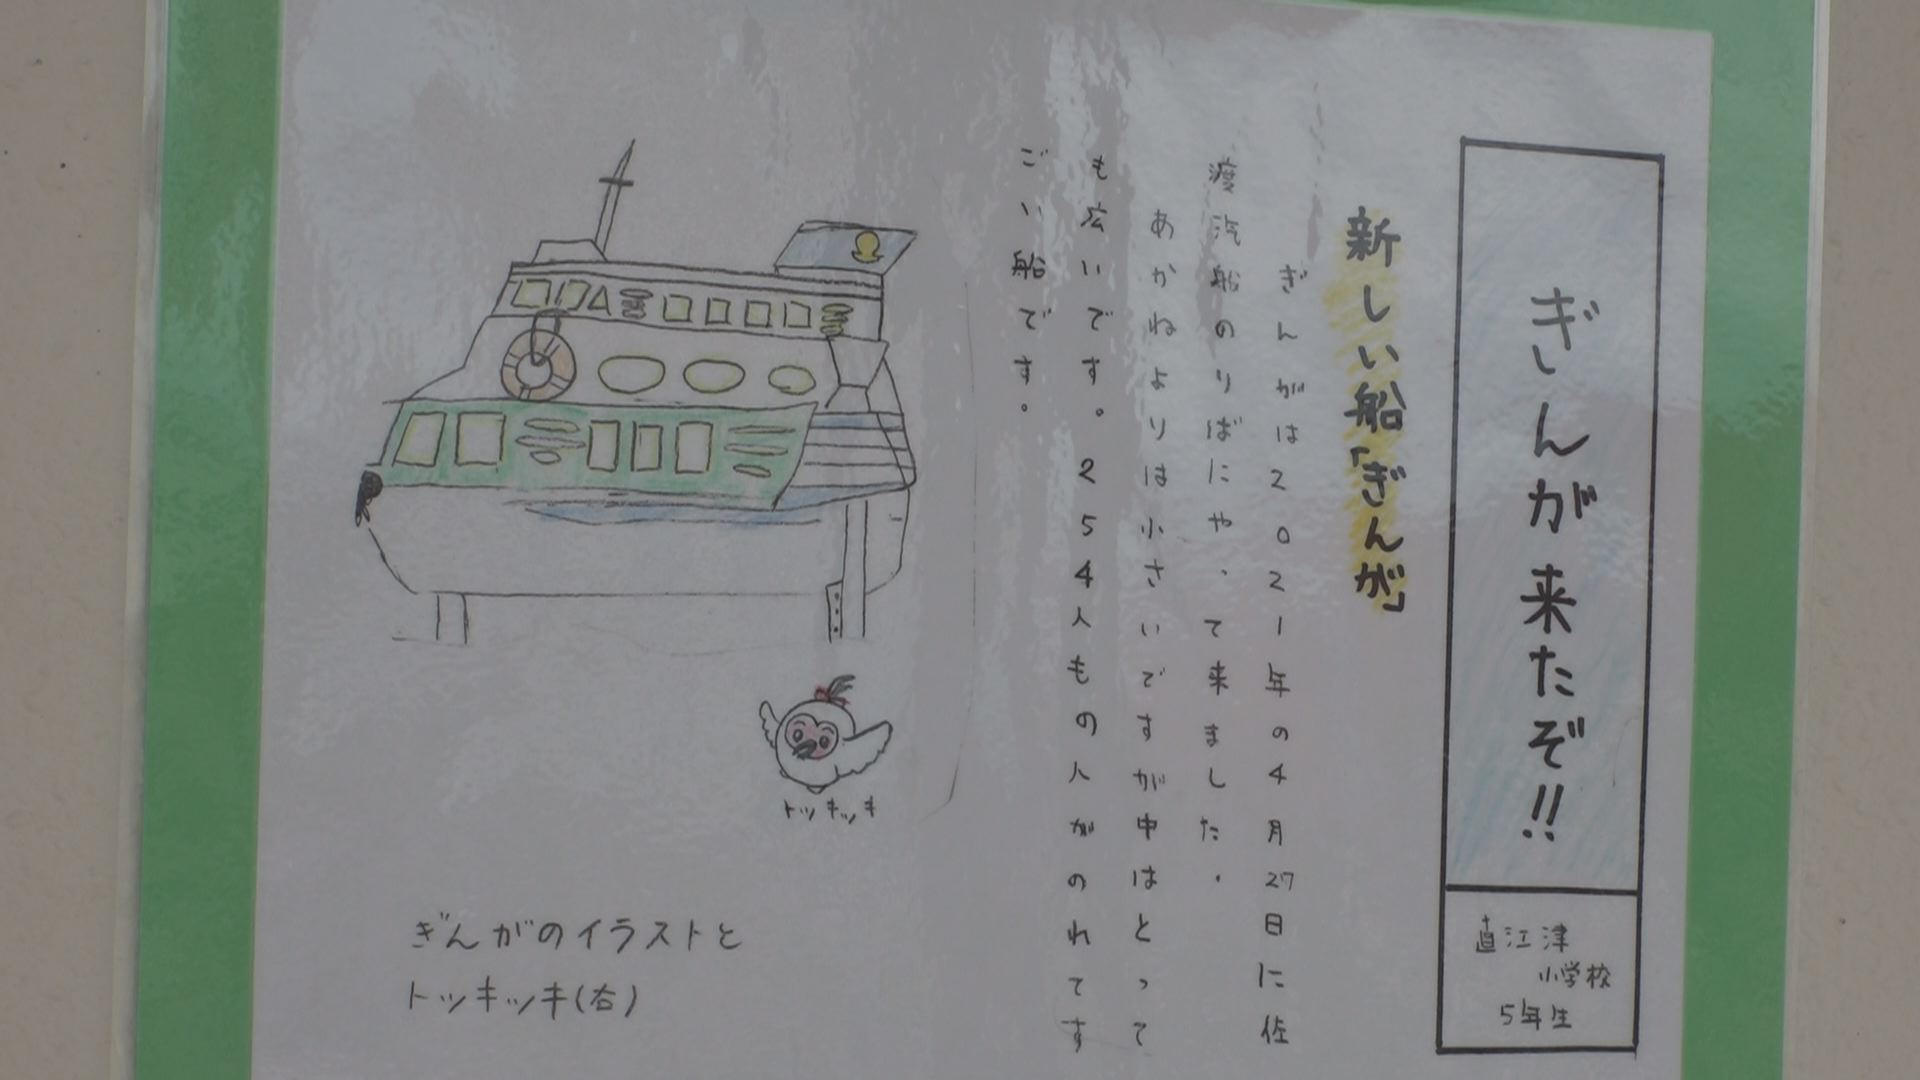 ぎんが来たぞ!!
直江津
小学校
5年生
新しい船「ぎんが」
ぎんがは2021年の4月27日に佐
渡汽船のりばにや、て来ました。
あかねよりは小さいですが中はとって
も広いです。254人もの人がのれてす
ごい船です。
トッキッキ
ぎんがのイラストと
トッキッキ(右)